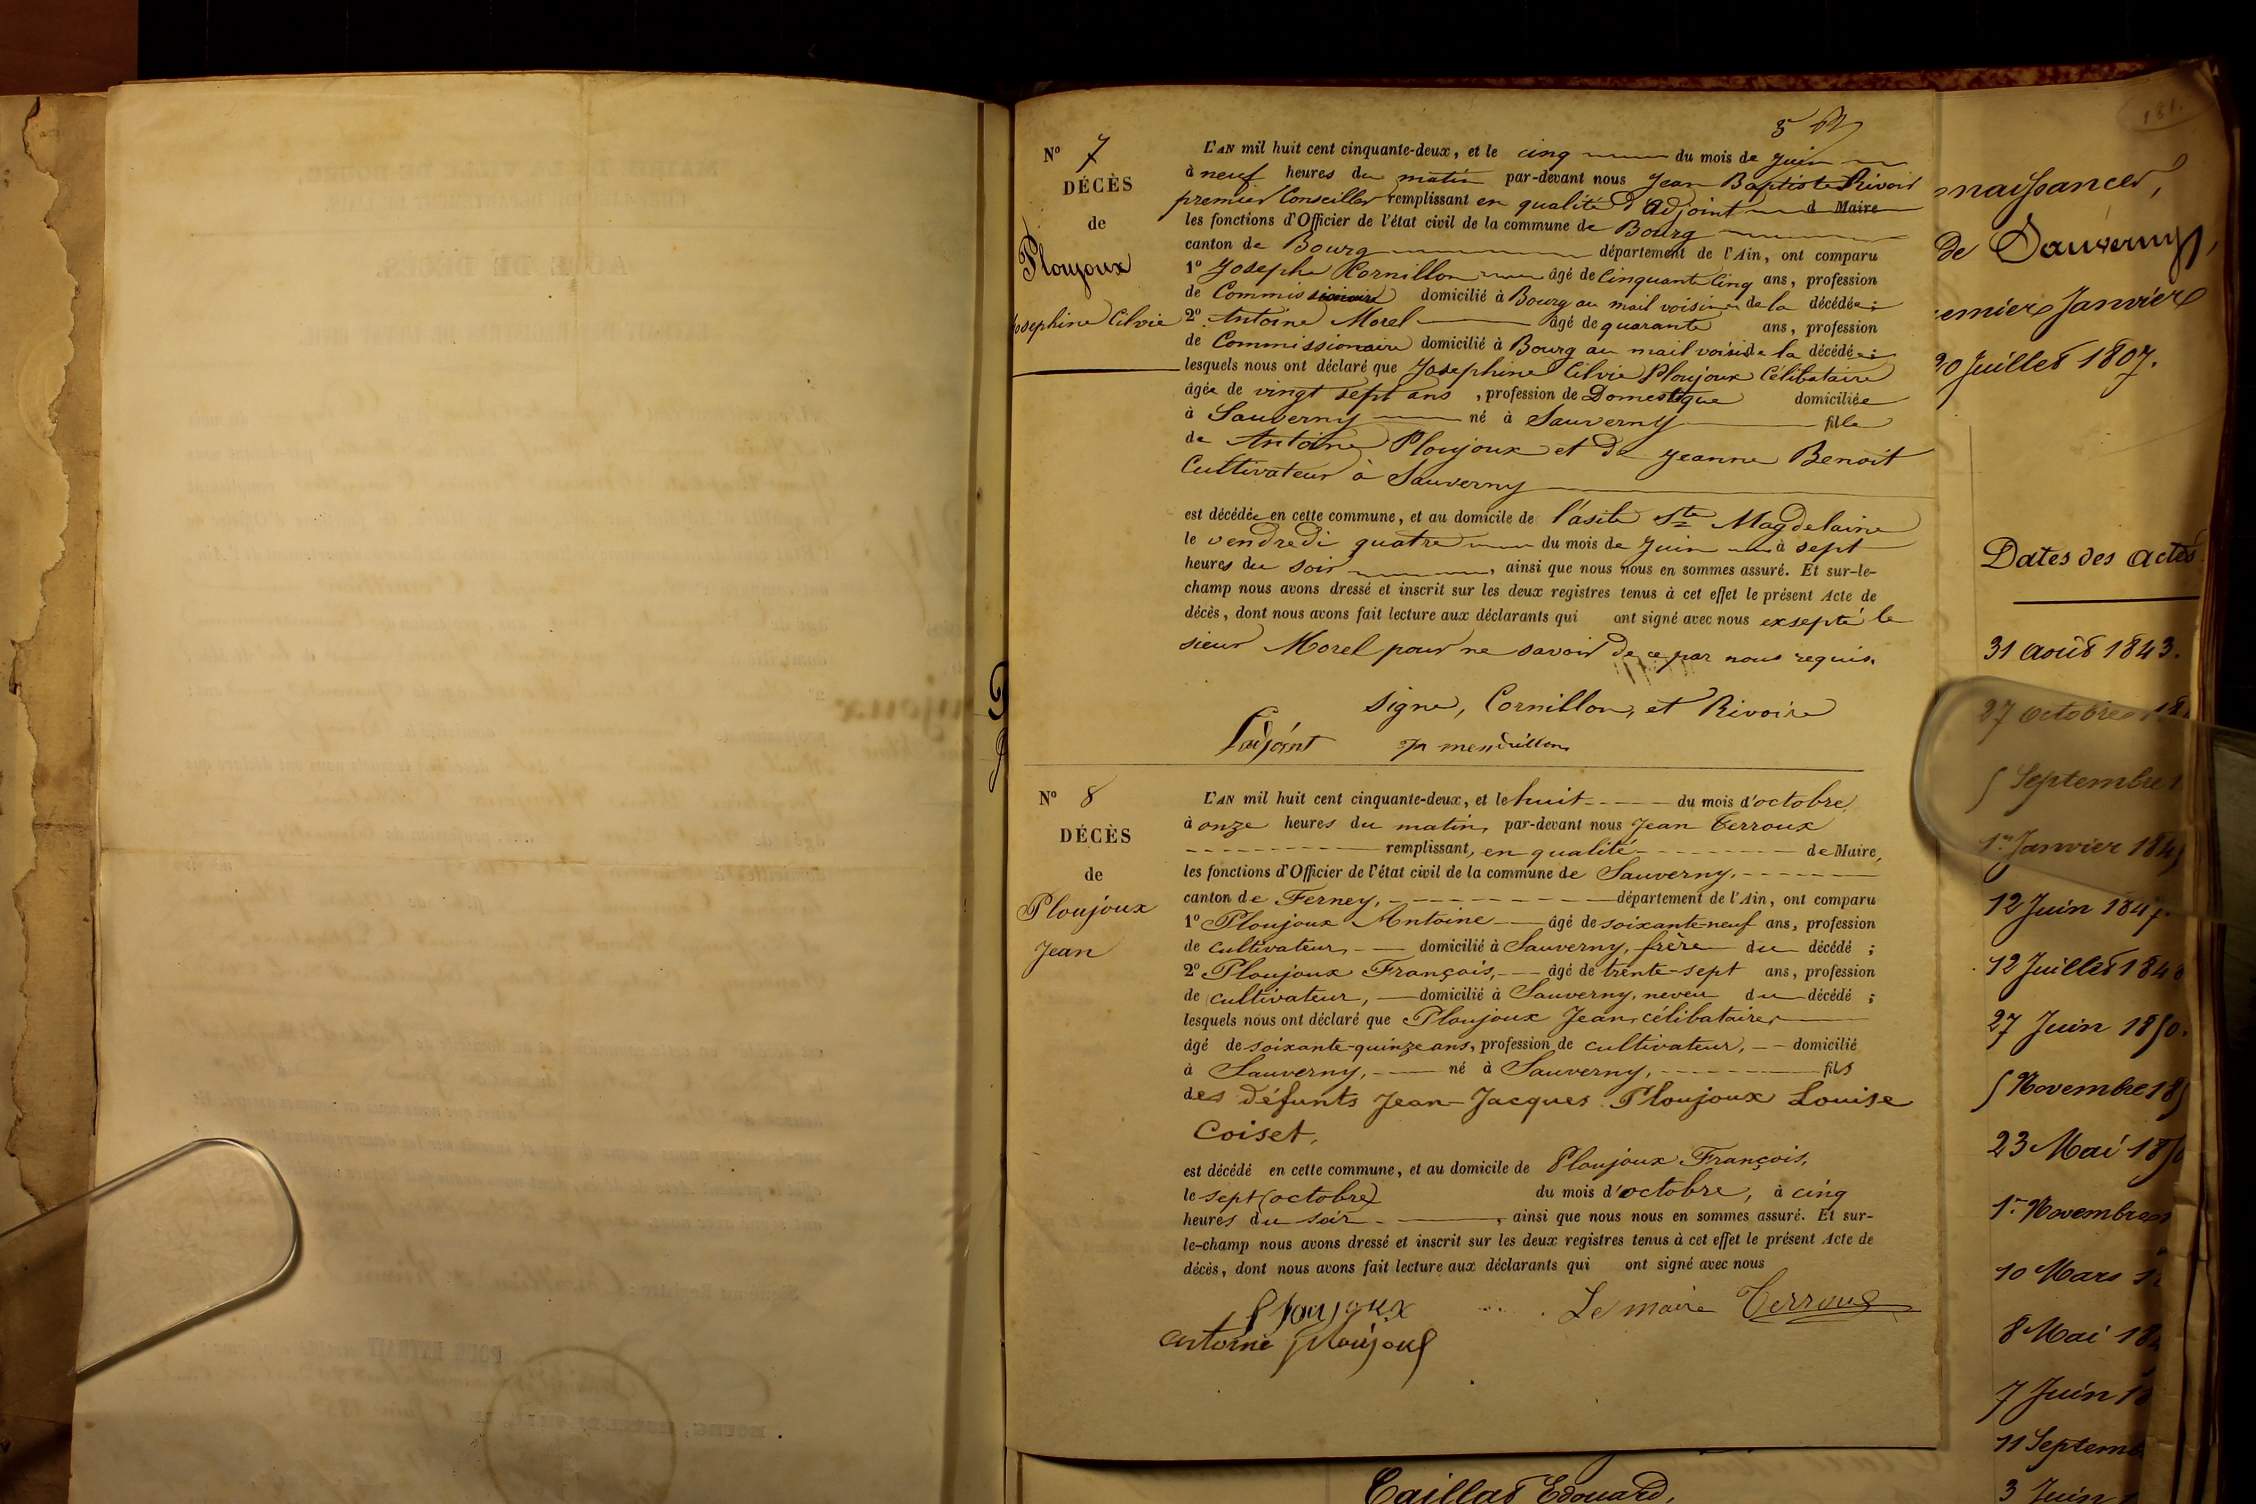 5
N° 7
DÉCÈS
de
Ploujoux
Josephine Cilvie
L'AN mil huit cent cinquante-deux, et le cinq du mois de Juin
à neuf heures du matin par-devant nous Jean Baptiste Rivoir
premier Conseiller remplissant en qualité d'adjoint d Maire
les fonctions d'Officier de l'état civil de la commune de Bourg
canton de Bourg département de l'Ain, ont comparu
1° Josephe Cornillon âgé de Cinquante Cinq ans, profession
de Commissionaire domicilié à Bourg au mail voisin de la décédée ;
2° Antoine Morel âgé de quarante ans, profession
de Commissionaire domicilié à Bourg au mail voisi de la décédée ;
lesquels nous ont déclaré que Josephine Cilvie Ploujoux Célibataire
âgée de vingt sept ans , profession de Domestique domiciliée
à Sauverny né à Sauverny fille
de Antoine Ploujoux et De Jeanne Benoit
Cultivateur à Sauverny
est décédée en cette commune, et au domicile de l'asile Ste Magdelaine
le vendredi quatre du mois de Juin à sept
heures du soir , ainsi que nous nous en sommes assuré. Et sur-le-
champ nous avons dressé et inscrit sur les deux registres tenus à cet effet le présent Acte de
décès, dont nous avons fait lecture aux déclarants qui ont signé avec nous exsepté le
sieur Morel pour ne savoir de ce par nous requis.
Signe, Cornillon, et Rivoire
L'adjoint
N° 8
DÉCÈS
de
Ploujoux
Jean
L'AN mil huit cent cinquante-deux, et le huit du mois d'octobre,
à onze heures du matin, par-devant nous Jean Terroux
remplissant, en qualité de Maire,
les fonctions d'Officier de l'état civil de la commune de Sauverny,
canton de Ferney, département de l'Ain, ont comparu
1° Ploujoux Antoine âgé de soixante-neuf ans, profession
de cultivateur, domicilié à Sauverny, frère du décédé ;
2° Ploujoux François, âgé de trente-sept ans, profession
de cultivateur, domicilié à Sauverny, neveu du décédé ;
lesquels nous ont déclaré que Ploujoux Jean, célibataire,
âgé de soixante-quinze ans, profession de cultivateur, domicilié
à Sauverny, né à Sauverny, fils
des défunts Jean-Jacques Ploujoux Louise
Coiset,
est décédé en cette commune, et au domicile de Ploujoux François,
le sept (octobre) du mois d'octobre, à cinq
heures du soir , ainsi que nous nous en sommes assuré. Et sur-
le-champ nous avons dressé et inscrit sur les deux registres tenus à cet effet le présent Acte de
décès, dont nous avons fait lecture aux déclarants qui ont signé avec nous
Ploujoux Le maire Terroux
antoine Ploujoux
181.
naissances,
de Sauverny,
Janvier
20 Juillet 1807.
Dates des actes
31 août 1843.
27 octobre 18
5 Septembre 1
1er Janvier 184
12 Juin 1847.
12 Juillet 184
27 Juin 1850.
5 Novembre 18
23 Mai 18
1er Novembre
10 Mars 1
8 Mai 18
7 Juin 18
11 Septem
3 Juin
Caillat Edouard,